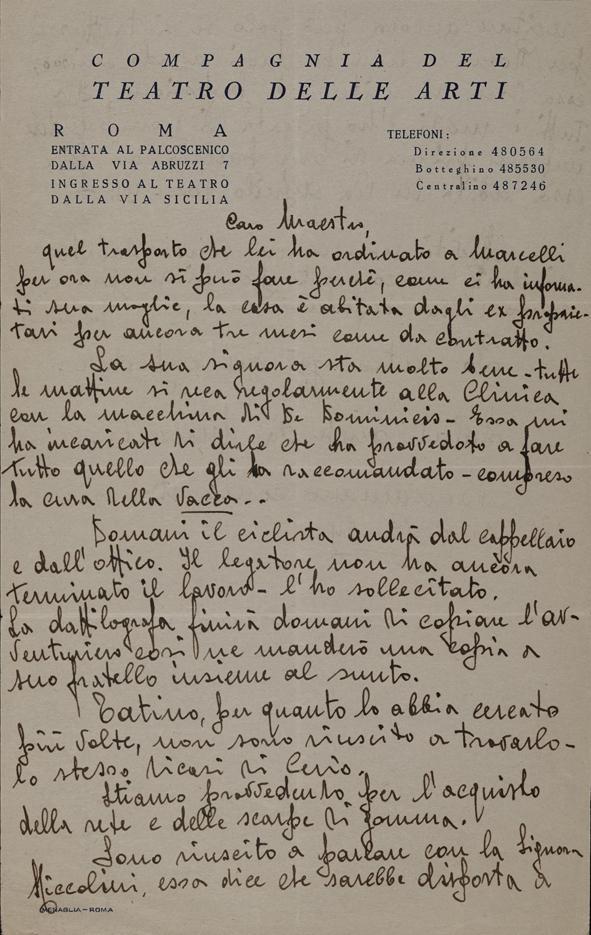 COMPAGNIA DEL
TEATRO DELLE ARTI
ROMA
ENTRATA AL PALCOSCENICO
DALLA VIA ABRUZZI 7
INGRESSO AL TEATRO
DALLA VIA SICILIA
TELEFONI:
Direzione 480564
Botteghino 485530
Centralino 487246
Caro Maestro,
quel trasporto che lei ha ordinato a Marcelli
per ora non si può fare perchè, come ci ha informa-
ti sua moglie, la casa è abitata dagli ex proprie-
tari per ancora tre mesi come da contratto.
La sua signora sta molto bene - tutte
le mattine si reca regolarmente alla Clinica
con la macchina di De Dominicis - Essa mi
ha incaricato di dirle che ha provveduto a fare
tutto quello che gli ha raccomandato - compreso
la cura della vacca..
Domani il ciclista andrà dal cappellaio
e dall'ottico. Il legatore non ha ancora
terminato il lavoro - l'ho sollecitato.
La dattilografa finirà domani di copiare l'av-
venturiero così ne manderò una copia a
suo fratello insieme al sunto.
Tatino, per quanto lo abbia cercato
più volte, non sono riuscito a trovarlo -
lo stesso dicasi di Cerio.
Stiamo provvedendo per l'acquisto
della rete e delle scarpe di gomma.
Sono riuscito a parlare con la Signora
Niccolini, essa dice che sarebbe disposta a
MENAGLIA - ROMA